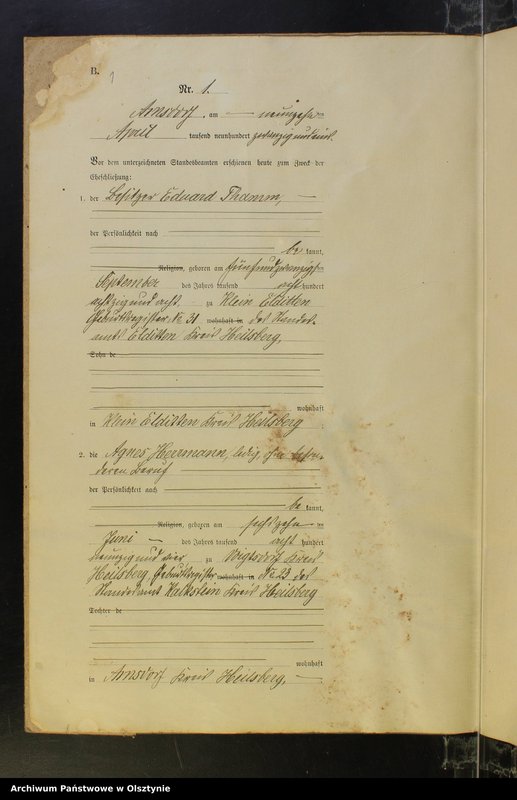 B. 1
Nr. 1.
Arnsdorf, am — neunzehn=
April tausend neunhundert zwanzig und eins.
Vor dem unterzeichneten Standesbeamten erschienen heute zum Zweck der
Eheschließung:
1. der Besitzer Eduard Thamm, —
der Persönlichkeit nach
be kannt,
Religion, geboren am fünfundzwanzigs=ten
September des Jahres tausend acht hundert
achtzig und acht zu Klein Elditten
Geburtsregister, No 31 wohnhaft in des Standes-
amts Elditten Kreis Heilsberg,
Sohn de
wohnhaft
in Klein Elditten Kreis Heilsberg ;
2. die Agnes Herrmann, ledig, ohne beson-
deren Beruf
der Persönlichkeit nach
be kannt,
Religion, geboren am sechszehn=ten
Juni — des Jahres tausend acht hundert
neunzig und vier zu Voigtsdorf Kreis
Heilsberg, Geburtsregister wohnhaft in No 23 des
Standesamts Kalkstein Kreis Heilsberg
Tochter de
wohnhaft
in Arnsdorf Kreis Heilsberg, —
Archiwum Państwowe w Olsztynie